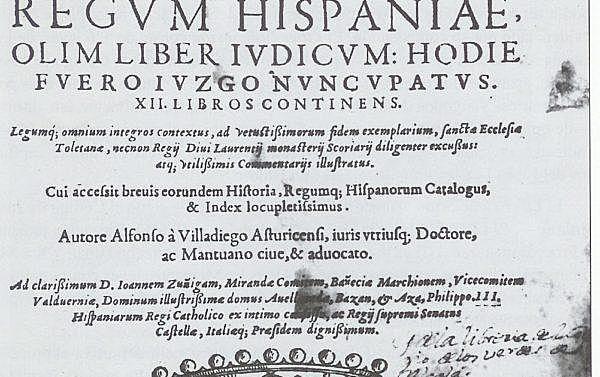 REGVM HISPANIAE,
OLIM LIBER IVDICVM: HODIE
FVERO IVZGO NVNCVPATVS.
XII. LIBROS CONTINENS.
Legumq; omnium integros contextus, ad vetustissimorum fidem exemplarium, sanctæ Ecclesiæ
Toletanæ, necnon Regij Diui Laurentij monasterij Scoriarij diligenter excussus:
atq; vtilissimis Commentarijs illustratus.
Cui accessit breuis eorundem Historia, Regumq; Hispanorum Catalogus,
& Index locupletissimus.
Autore Alfonso à Villadiego Asturicensi, iuris vtriusq; Doctore,
ac Mantuano ciue, & aduocato.
Ad clarissimum D. Ioannem Zuñigam, Mirandæ Comitem, Bañeciæ Marchionem, Vicecomitem
Valduerniæ, Dominum illustrissimæ domus Bazan, & Aza, Philippo.III.
Hispaniarum Regi Catholico ex intimo ac Regij supremi Senatus
Castellæ, Italiæq; Præsidem dignissimum.
de la libreria de